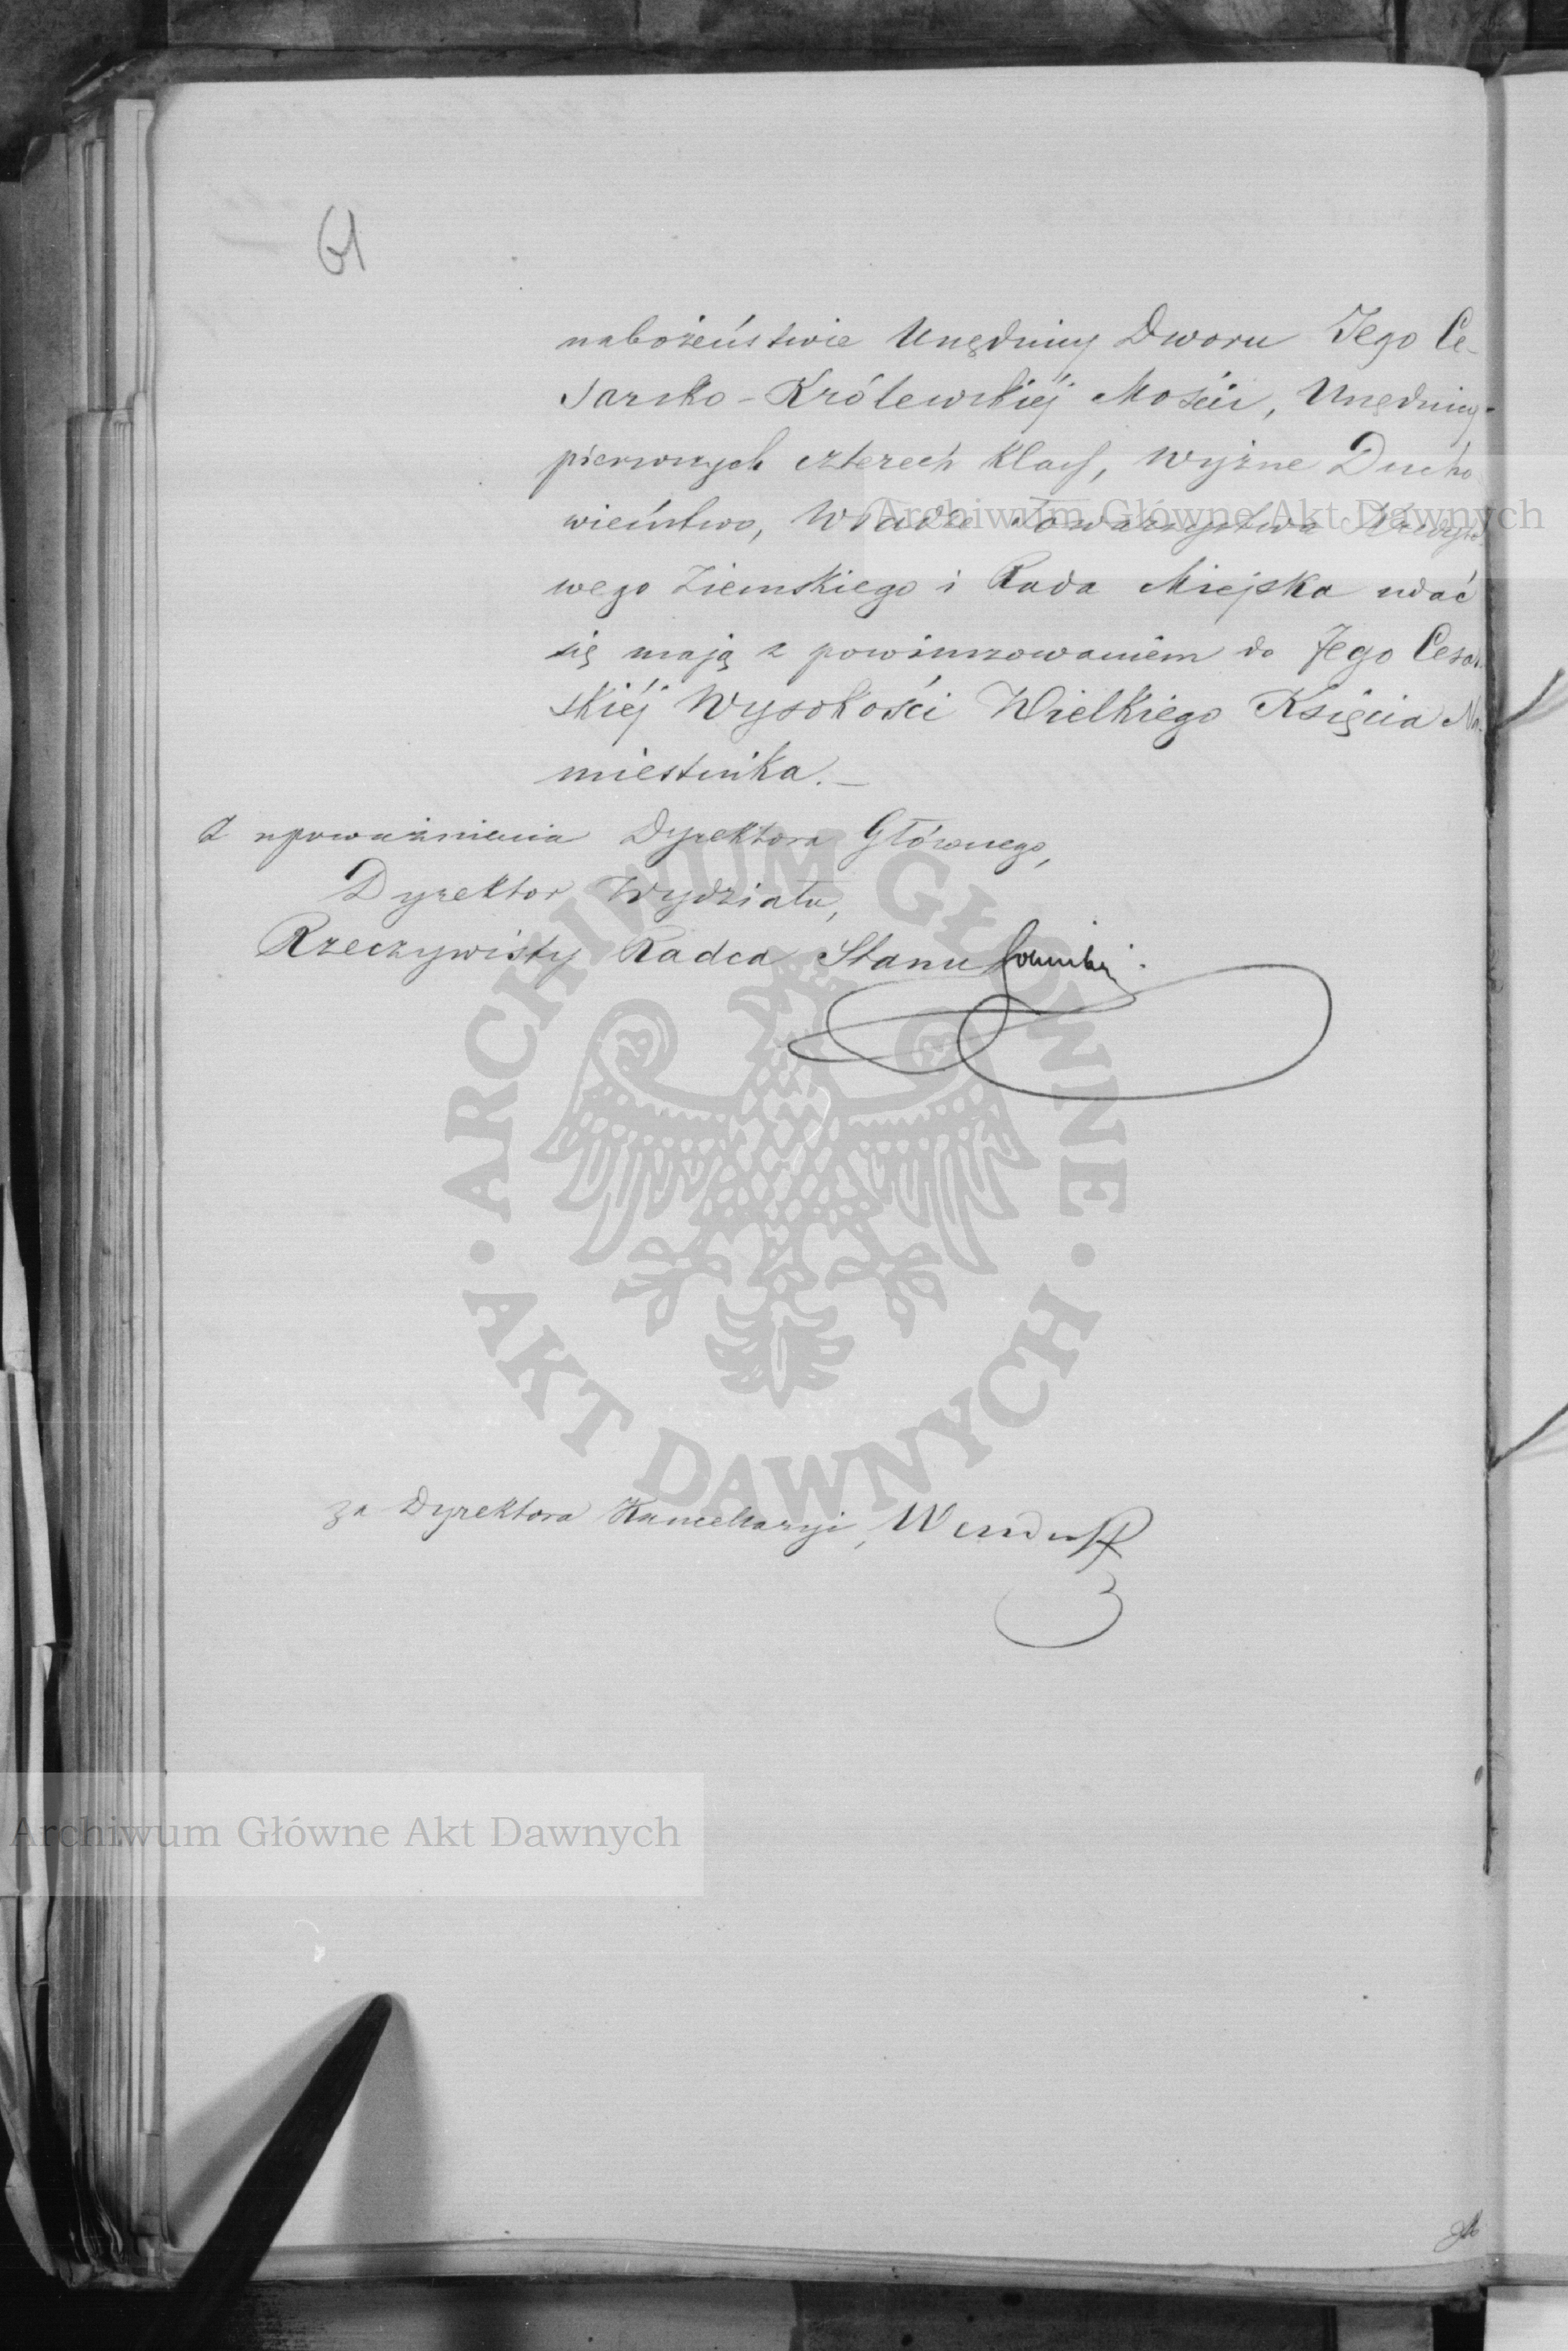 61
nabożeństwie Urzędnicy Dworu Jego Ce-
sarsko-Królewskiéj Mości, Urzędnicy
pierwszych czterech Klass, Wyższe Ducho
wieństwo, Władze Towarzystwa Kredyto
Archiwum Główne Akt Dawnych
wego Ziemskiego i Rada Miejska udać
się mają z powinszowaniem do Jego Cesar-
skiéj Wysokości Wielkiego Księcia Na-
miestnika.—
Z upoważnienia Dyrektora Głównego,
Dyrektor Wydziału,
Rzeczywisty Radca Stanu
ARCHIWUM GŁÓWNE
· AKT DAWNYCH ·
za Dyrektora Kancellaryi,
Archiwum Główne Akt Dawnych